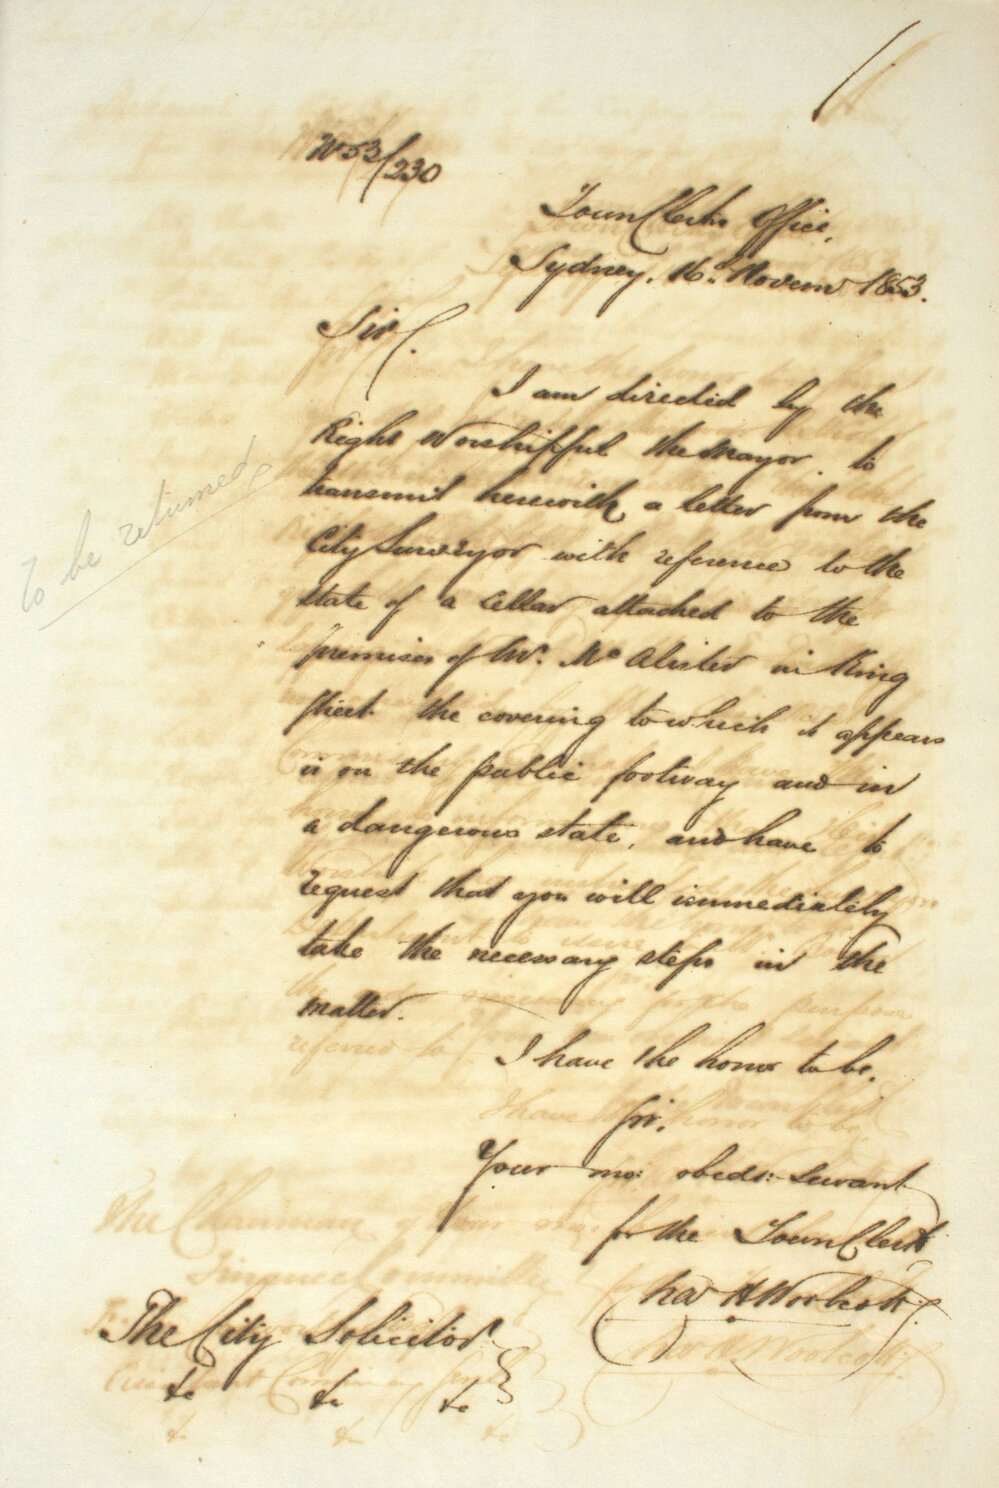 No 53/230
Town Clerks Office,
Sydney. 16th Novemr 1853.
Sir
I am directed by the
Right Worshipful the Mayor, to
transmit herewith a letter from the
City Surveyor with reference to the
state of a cellar attached to the
premises of Mr. Mc Alister in King
Street the covering to which it appears
is on the public footway and in
a dangerous state, and have to
request that you will immediately
take the necessary steps in the
matter.
To be returned
I have the honor to be,
Sir,
Your mo: obedt: Servant
for the Town Clerk
Chas H Woolcott
The City Solicitor
&c &c &c